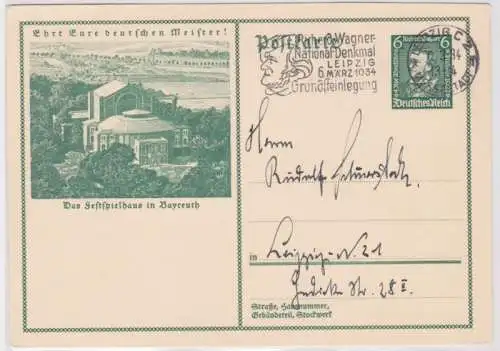 Ehrt Eure deutschen Meister!
Das Festspielhaus in Bayreuth
Postkarte
Richard-Wagner-
National-Denkmal
LEIPZIG
6. MÄRZ 1934
Grundsteinlegung
LEIPZIG C 2
6 6
Deutsches Reich
Herrn
Rudolf
in Leipzig N 21
Str. 28 II.
Straße, Hausnummer,
Gebäudeteil, Stockwerk